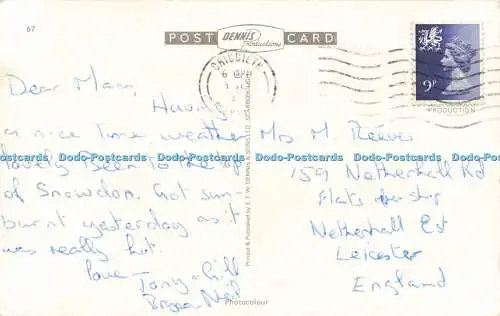 67
POST DENNIS Productions CARD
CRICCIETH
9P
PRODUCTION
Dear Mam,
Having
a nice time weather
lovely Been to the top
of Snowdon. Got sun-
burnt yesterday as it
was really hot.
love
Tony Gill
Neil
Mrs M. Reeves
159 Netherhall Rd
Flats
Netherhall Est
Leicester
England
Printed & Published by E. T. W. DENNIS & SONS LTD. SCARBOROUGH
Photocolour
Dodo-Postcards Dodo-Postcards Dodo-Postcards Dodo-Postcards Dodo-Postcards